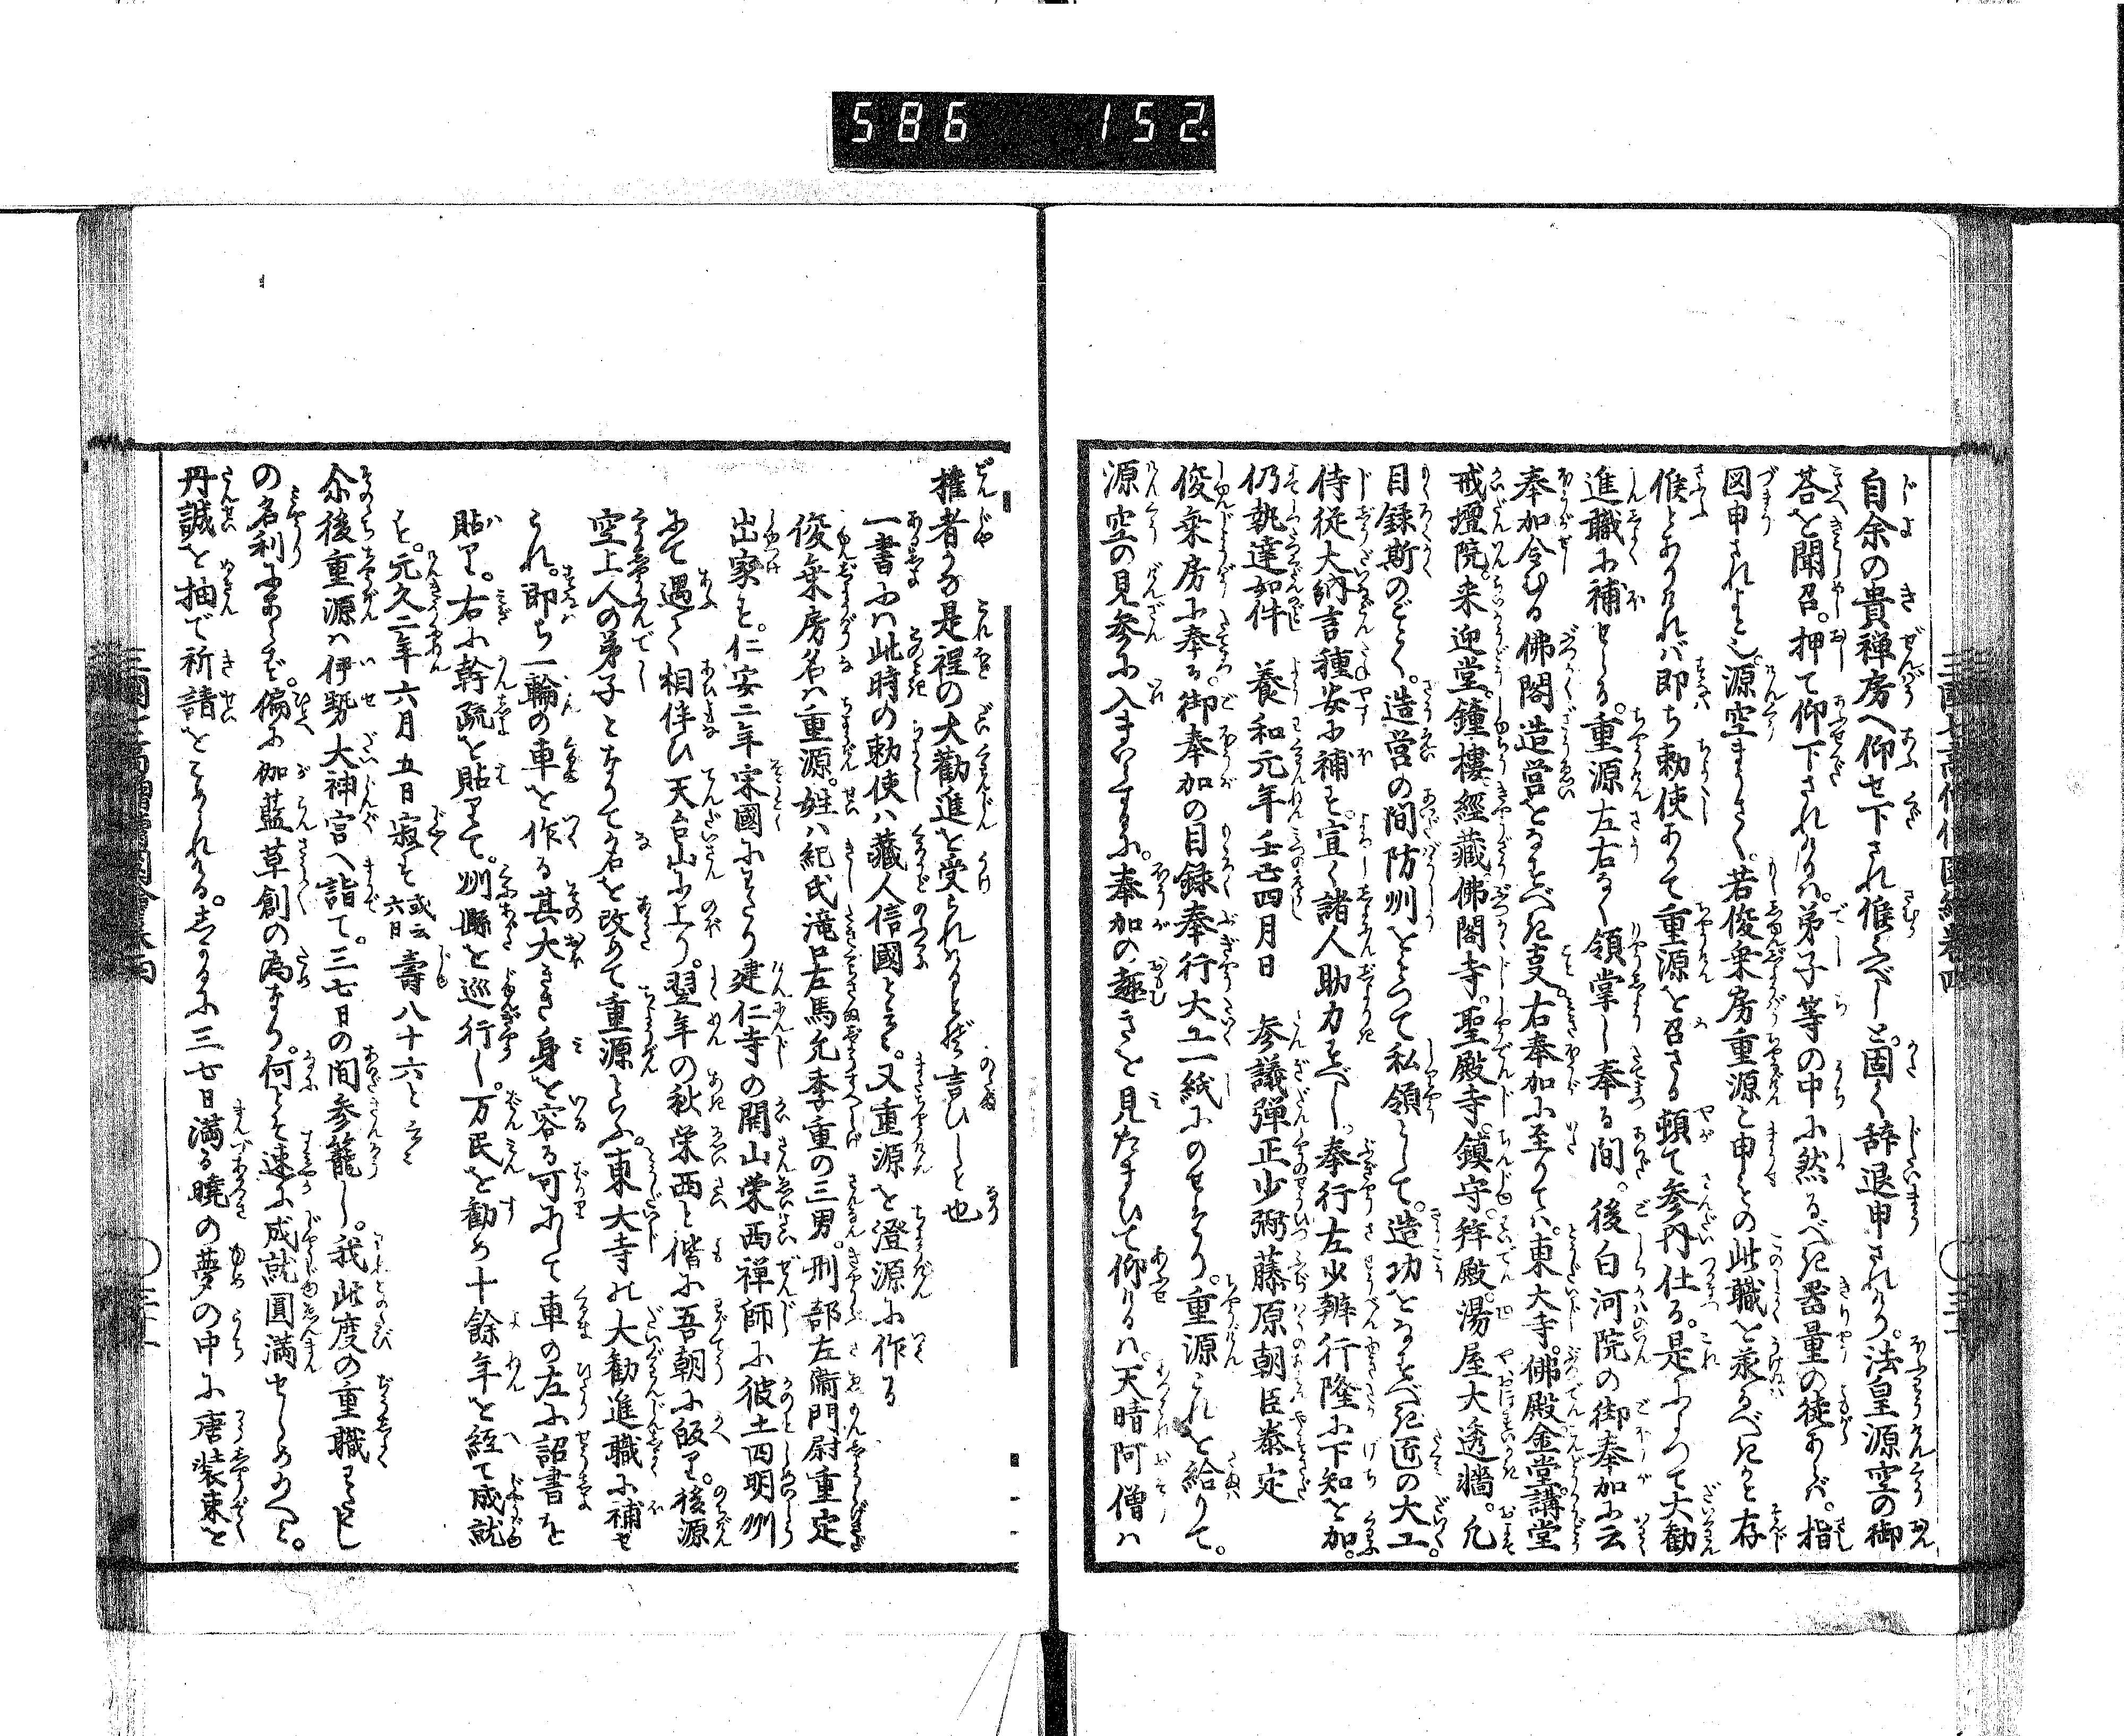 586 152
自余の貴禅房へ仰せ下され候べしと。固く辞退申されけり。法皇源空の御
荅を聞召。押て仰下されけるハ。弟子等の中に然るべき器量の徒あらバ。指
図申されよと也。源空まうさく。若俊乗房重源と申もの此職を承るべきかと存
候とありけれバ即ち勅使ありて重源を召さる頓て参内仕る。是によつて大勧
進職に補せらる。重源左右なく領掌し奉る間。後白河院の御奉加に云
奉加令むる佛閣造営をなすべき支。右奉加に至りてハ。東大寺。佛殿金堂。講堂
戒壇院。来迎堂。鐘樓。經藏。佛閣寺。聖殿寺。鎮守。拜殿。湯屋大透牆。凡
目録斯のごとく。造営の間防州をもつて私領として。造功をなすべき匠の大工。
侍従大納言種安に補す。宜く諸人助力すべし。奉行左少辨行隆に下知を加。
仍執達如件　養和元年壬丑四月日　参議弾正少弼藤原朝臣泰定
俊乗房に奉る。御奉加の目録奉行大工一紙にのせたり。重源これを給りて。
源空の見参に入まいらするに。奉加の趣きを見たまひて仰けるハ。天晴阿僧ハ
権者かな是程の大勧進を受られけるよと感じ言ひしと也
一書にハ此時の勅使ハ藏人信國といふ。又重源を澄源に作る
俊乗房名ハ重源。姓ハ紀氏滝口左馬允季重の三男。刑部左衛門尉重定
出家す。仁安二年宋國にわたり建仁寺の開山栄西禅師に彼土四明州
にて遇て相伴ひ天台山に上り。翌年の秋栄西と偕に吾朝に皈り。後源
空上人の弟子となりて名を改めて重源といふ。東大寺の大勧進職に補せ
られ。即ち一輪の車を作る其大きき身を容る可にして車の左に詔書を
貼り。右に幹疏を貼りて。州縣を巡行し。万民を勧め十餘年を經て成就
す。元久二年六月五日寂す或云六日壽八十六と云云
尒後重源ハ伊勢大神宮へ詣て。三七日の間参籠し。我此度の重職わたくし
の名利にあらず。偏に伽藍草創の為なり。何とぞ速に成就圓満せしめ給へと。
丹誠を抽で祈請をこめられける。しかるに三七日満る曉の夢の中に唐装束を